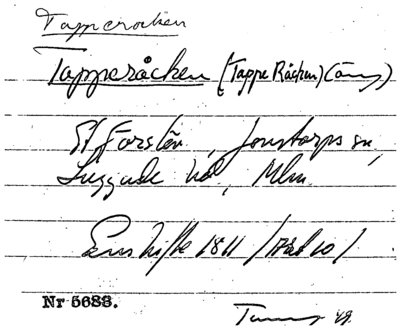 Tapperocken
Tapperåcken (Tappe Råcken) (äng)
St Forstena, Jonstorps sn,
Luggude hd, Mlm.
Enskifte 1811
Nr 5688.